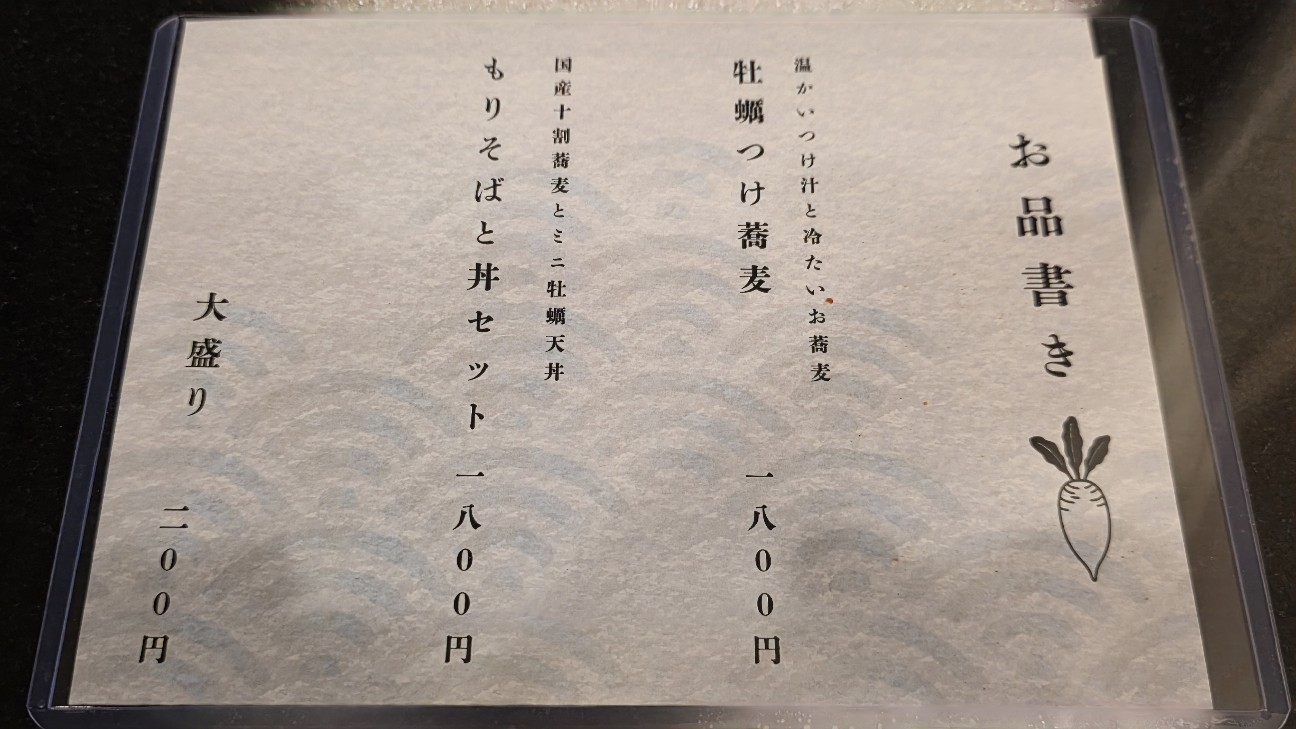 お品書き
温かいつけ汁と冷たいお蕎麦
牡蠣つけ蕎麦 一八００円
国産十割蕎麦とミニ牡蠣天丼
もりそばと丼セット 一八００円
大盛り 二００円